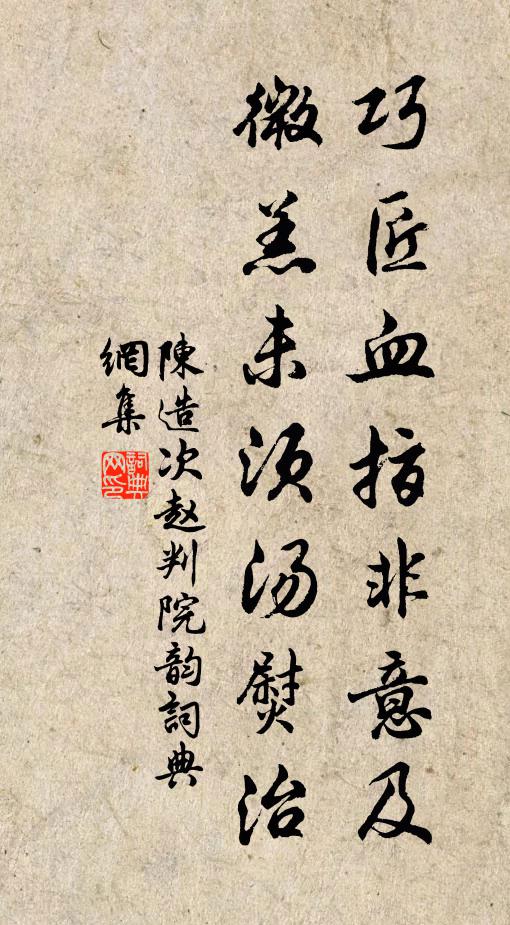 巧匠血指非意及
微恙未须汤熨治
陳造次赵判院韵詞典
網集
詞典網印